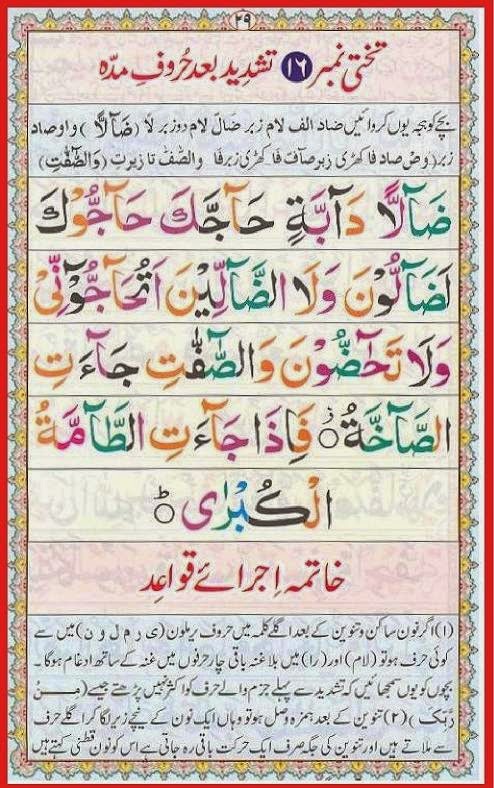 ۲۹
تختی نمبر ۱۶ تشدید بعد حُروفِ مدّہ
بچے کو ہجے یوں کروائیں ضاد الف لام زبر ضَالَ لام دو زبر لًا (ضَآلًّا) واو صاد
زبر (وَصْ صاد فا کھڑی زبر صٰٓافْ فا کھڑی زبر فٰا وَالصّٰٓفّٰ تا زیرتِ (وَالصّٰٓفّٰتِ)
ضَآلًّا دَآبَّةٍ حَآجَّكَ حَآجُّوْكَ
لَضَآلُّوْنَ وَلَا الضَّآلِّيْنَ اَتُحَآجُّوْٓنِّىْ
وَلَا تَحٰٓضُّوْنَ وَالصّٰٓفّٰتِ جَآءَتِ
الصَّآخَّةُ ۝ فَاِذَا جَآءَتِ الطَّآمَّةُ
الْكُبْرٰى ۝ ط
خاتمہ اِجرائے قواعِد
(۱) اگر نون ساکن و تنوین کے بعد اگلے کلمہ میں حروف یرملون (ی ر م ل و ن) میں سے
کوئی حرف ہو تو (لام) اور (را) میں بلا غنہ باقی چار حرفوں میں غنہ کے ساتھ ادغام ہوگا۔
بچوں کو یوں سمجھائیں کہ تشدید سے پہلے جزم والے حرف کو اکثر نہیں پڑھتے جیسے (مِنْ
رَّبِّكَ) (۲) تنوین کے بعد ہمزہ وصل ہو تو وہاں ایک نون کے نیچے زیر لگا کر اگلے حرف
سے ملاتے ہیں اور تنوین کی جگہ صرف ایک حرکت باقی رہ جاتی ہے اس کو نون قطنی کہتے ہیں